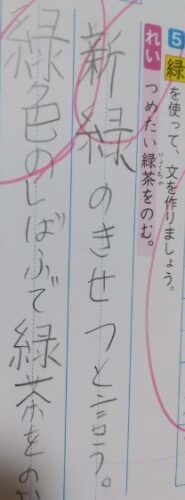 5 緑を使って、文を作りましょう。
れい つめたい緑茶をのむ。
りょくちゃ
新緑のきせつと言う。
緑色のしばふで緑茶を